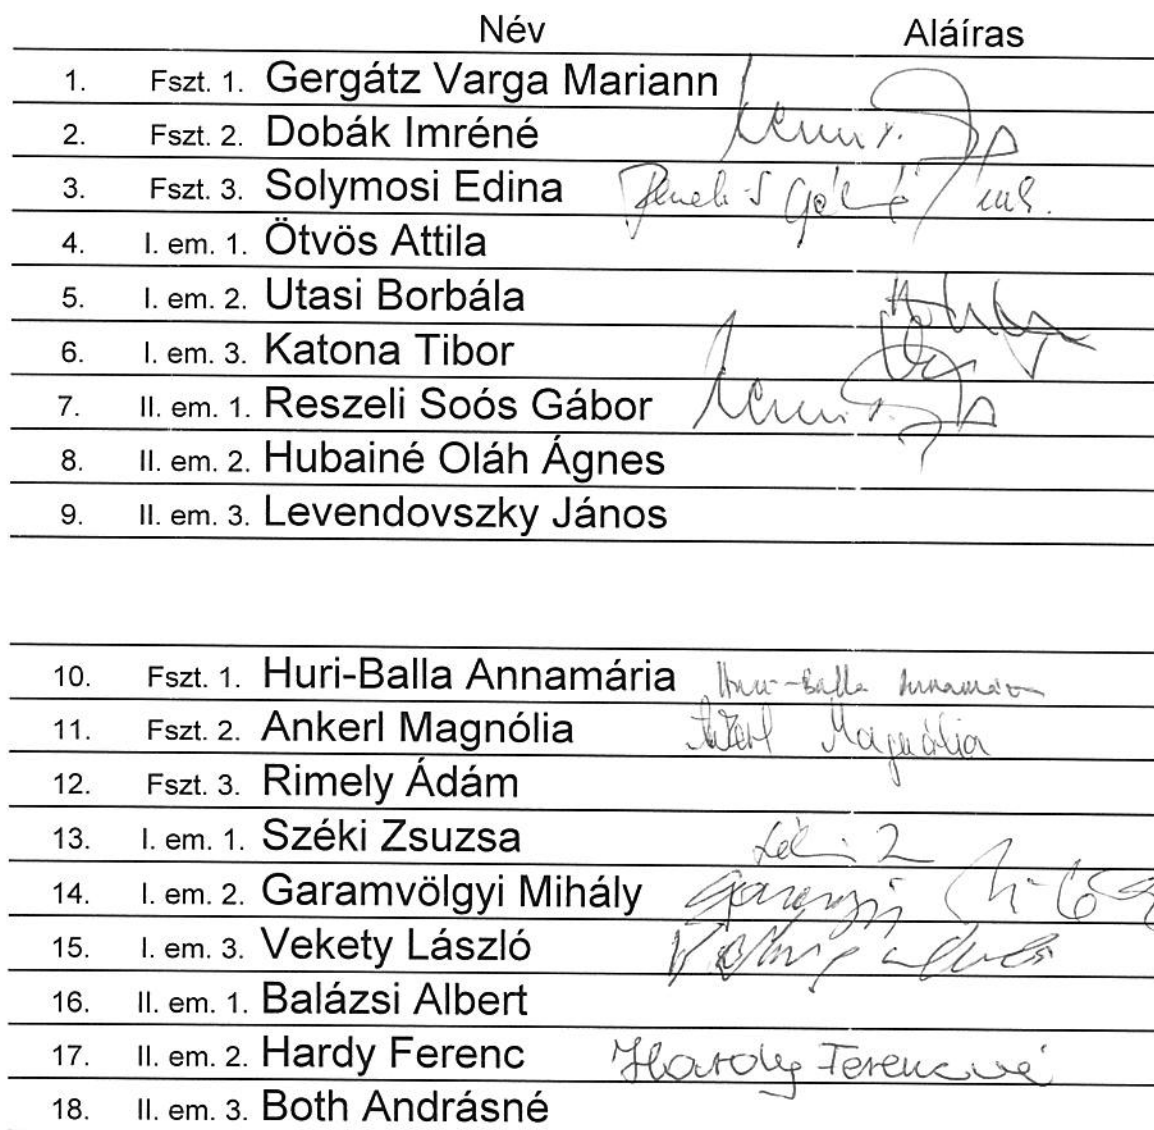 Név Aláíras
1. Fszt. 1. Gergátz Varga Mariann
2. Fszt. 2. Dobák Imréné
3. Fszt. 3. Solymosi Edina
4. I. em. 1. Ötvös Attila
5. I. em. 2. Utasi Borbála
6. I. em. 3. Katona Tibor
7. II. em. 1. Reszeli Soós Gábor
8. II. em. 2. Hubainé Oláh Ágnes
9. II. em. 3. Levendovszky János
10. Fszt. 1. Huri-Balla Annamária Huri-Balla Annamária
11. Fszt. 2. Ankerl Magnólia Ankerl Magnólia
12. Fszt. 3. Rimely Ádám
13. I. em. 1. Széki Zsuzsa
14. I. em. 2. Garamvölgyi Mihály
15. I. em. 3. Vekety László
16. II. em. 1. Balázsi Albert
17. II. em. 2. Hardy Ferenc Hardy Ferencné
18. II. em. 3. Both Andrásné